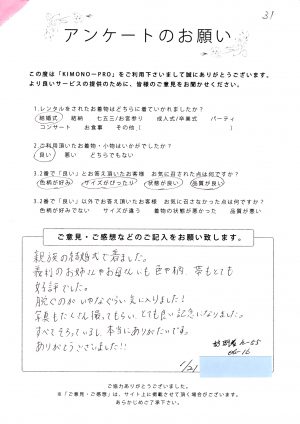 31
アンケートのお願い
この度は「KIMONO－PRO」をご利用下さいまして誠にありがとうございます。
より良いサービスの提供のために、皆様のご意見をお聞かせください。
1.レンタルをされたお着物はどちらに着ていかれましたか？
結婚式 結納 七五三/お宮参り 成人式/卒業式 パーティ
コンサート お食事 その他（ ）
2.ご利用頂いたお着物・小物はいかがでしたか？
良い 悪い どちらでもない
3.2番で「良い」とお答え頂いたお客様 お気に召された点は何ですか？
色柄が好み サイズがぴったり 状態が良い 品質が良い
3.2番で「良い」以外でお答え頂いたお客様 お気に召さなかった点は何ですか？
色柄が好みでない サイズが違う 着物の状態が悪かった 品質が悪い
ご意見・ご感想などのご記入をお願い致します。
親族の結婚式で着ました。
義利のお姉さんやお母さんにも色や柄、帯もとても
好評でした。
脱ぐのがいやなぐらい気に入りました！
写真もたくさん撮ってもらい、とても良い記念になりました。
すべてそろっているし、本当にありがたいです。
ありがとうございました!!
1/21
ご協力ありがとうございました。
※「ご意見・ご感想」は、サイト上に掲載させて頂く場合がございます。
あらかじめご了承下さい。